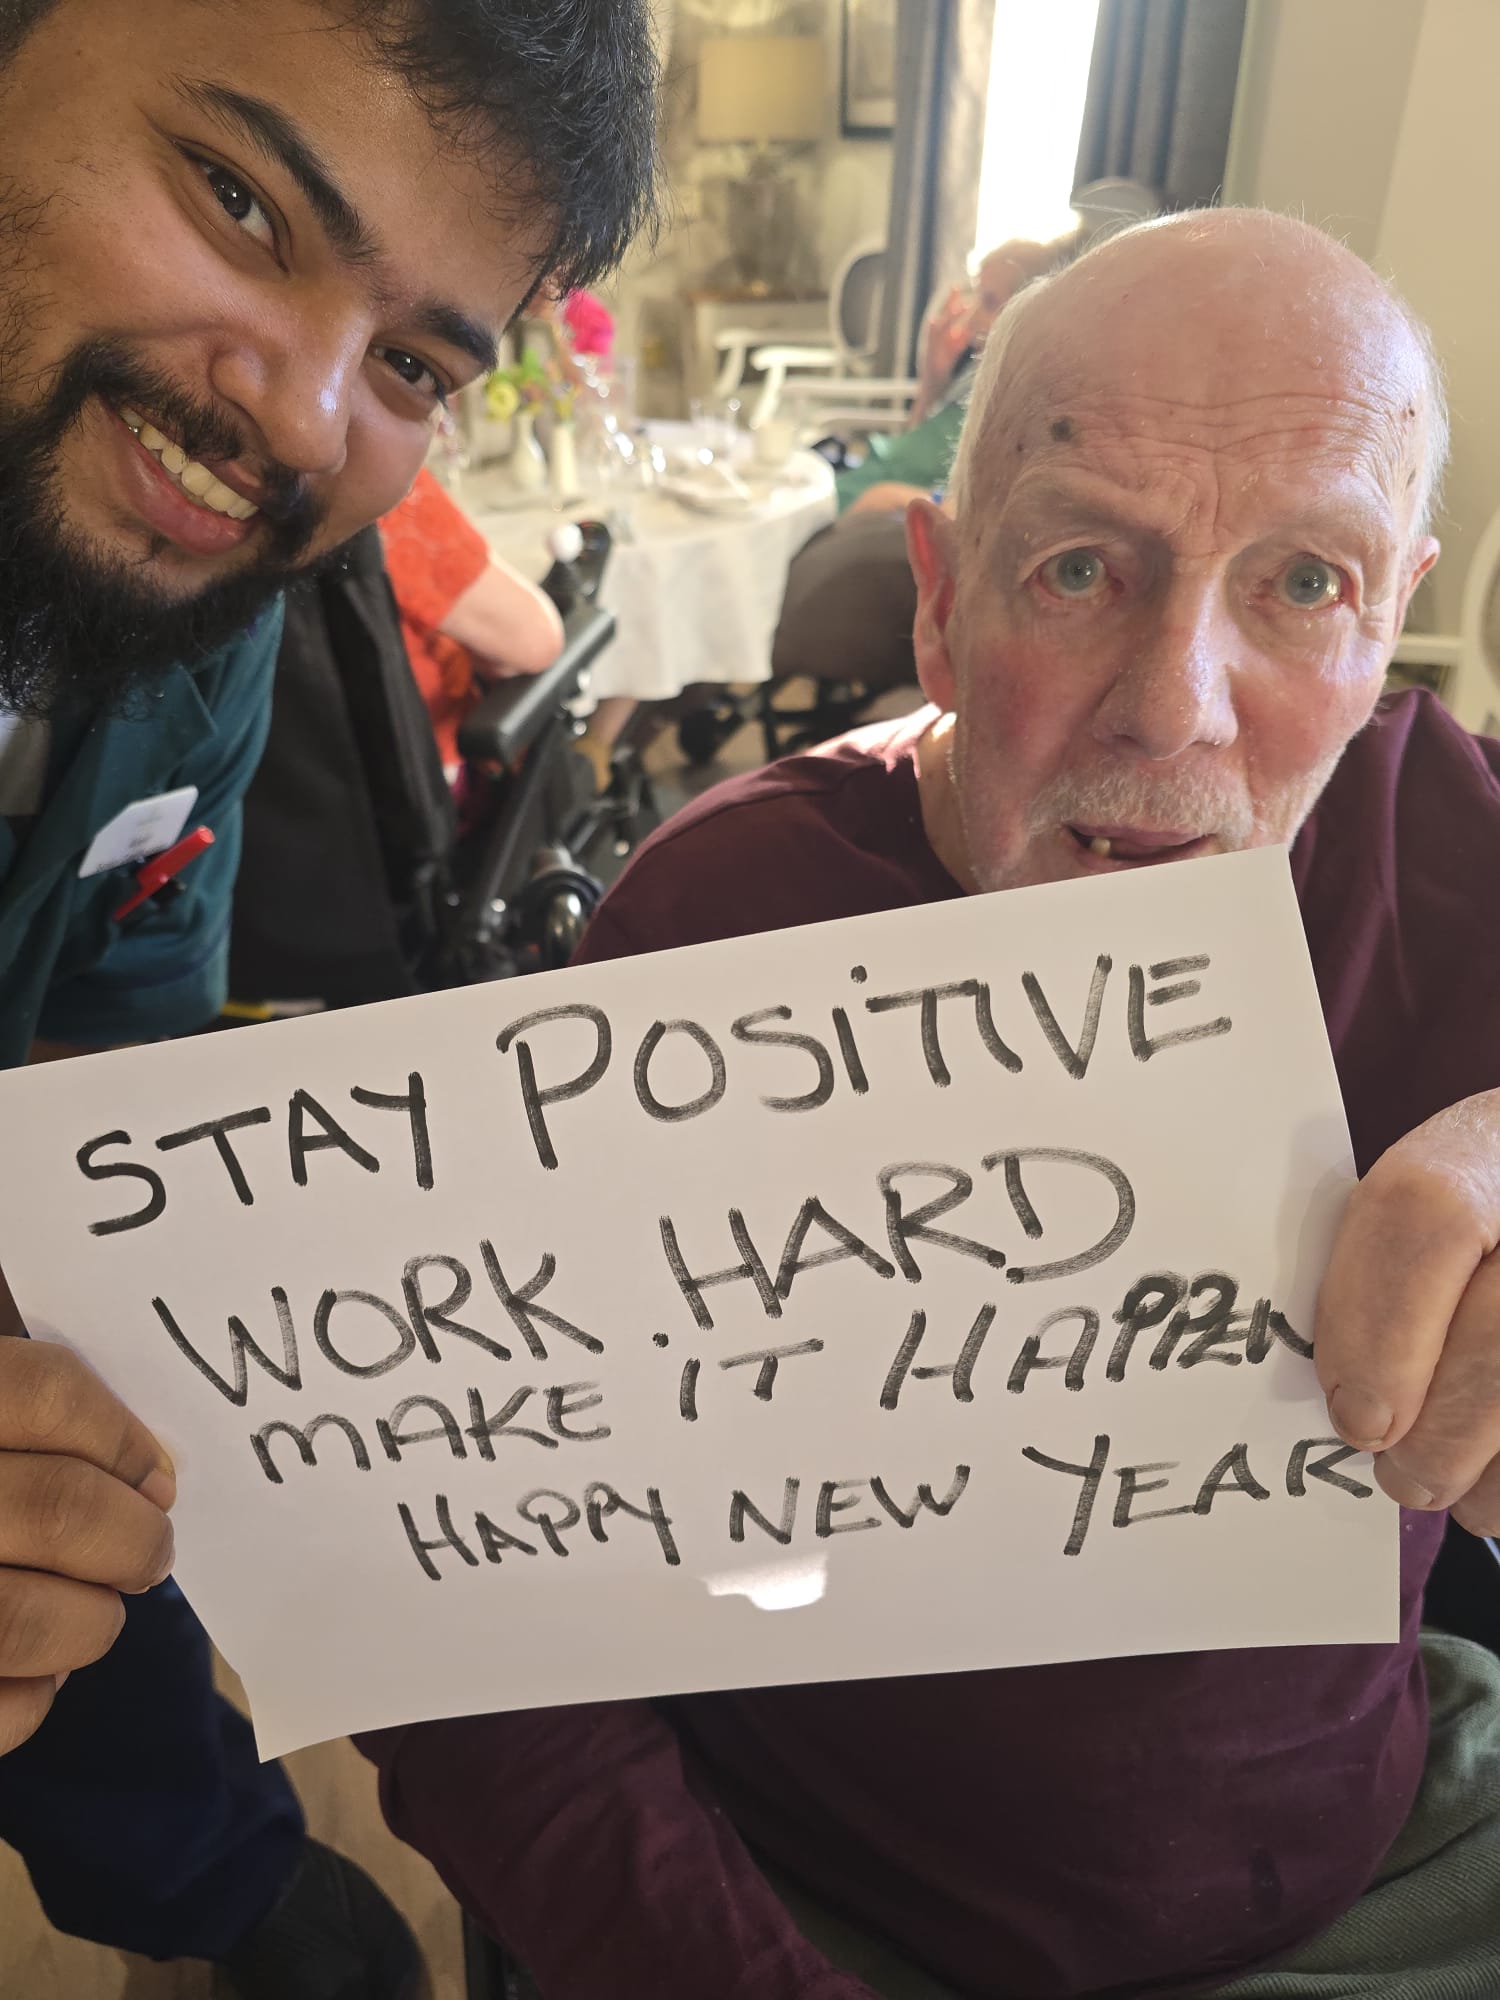 STAY POSiTIVE
WORK HARD
MAKE iT HAPPEN
HAPPY NEW YEAR